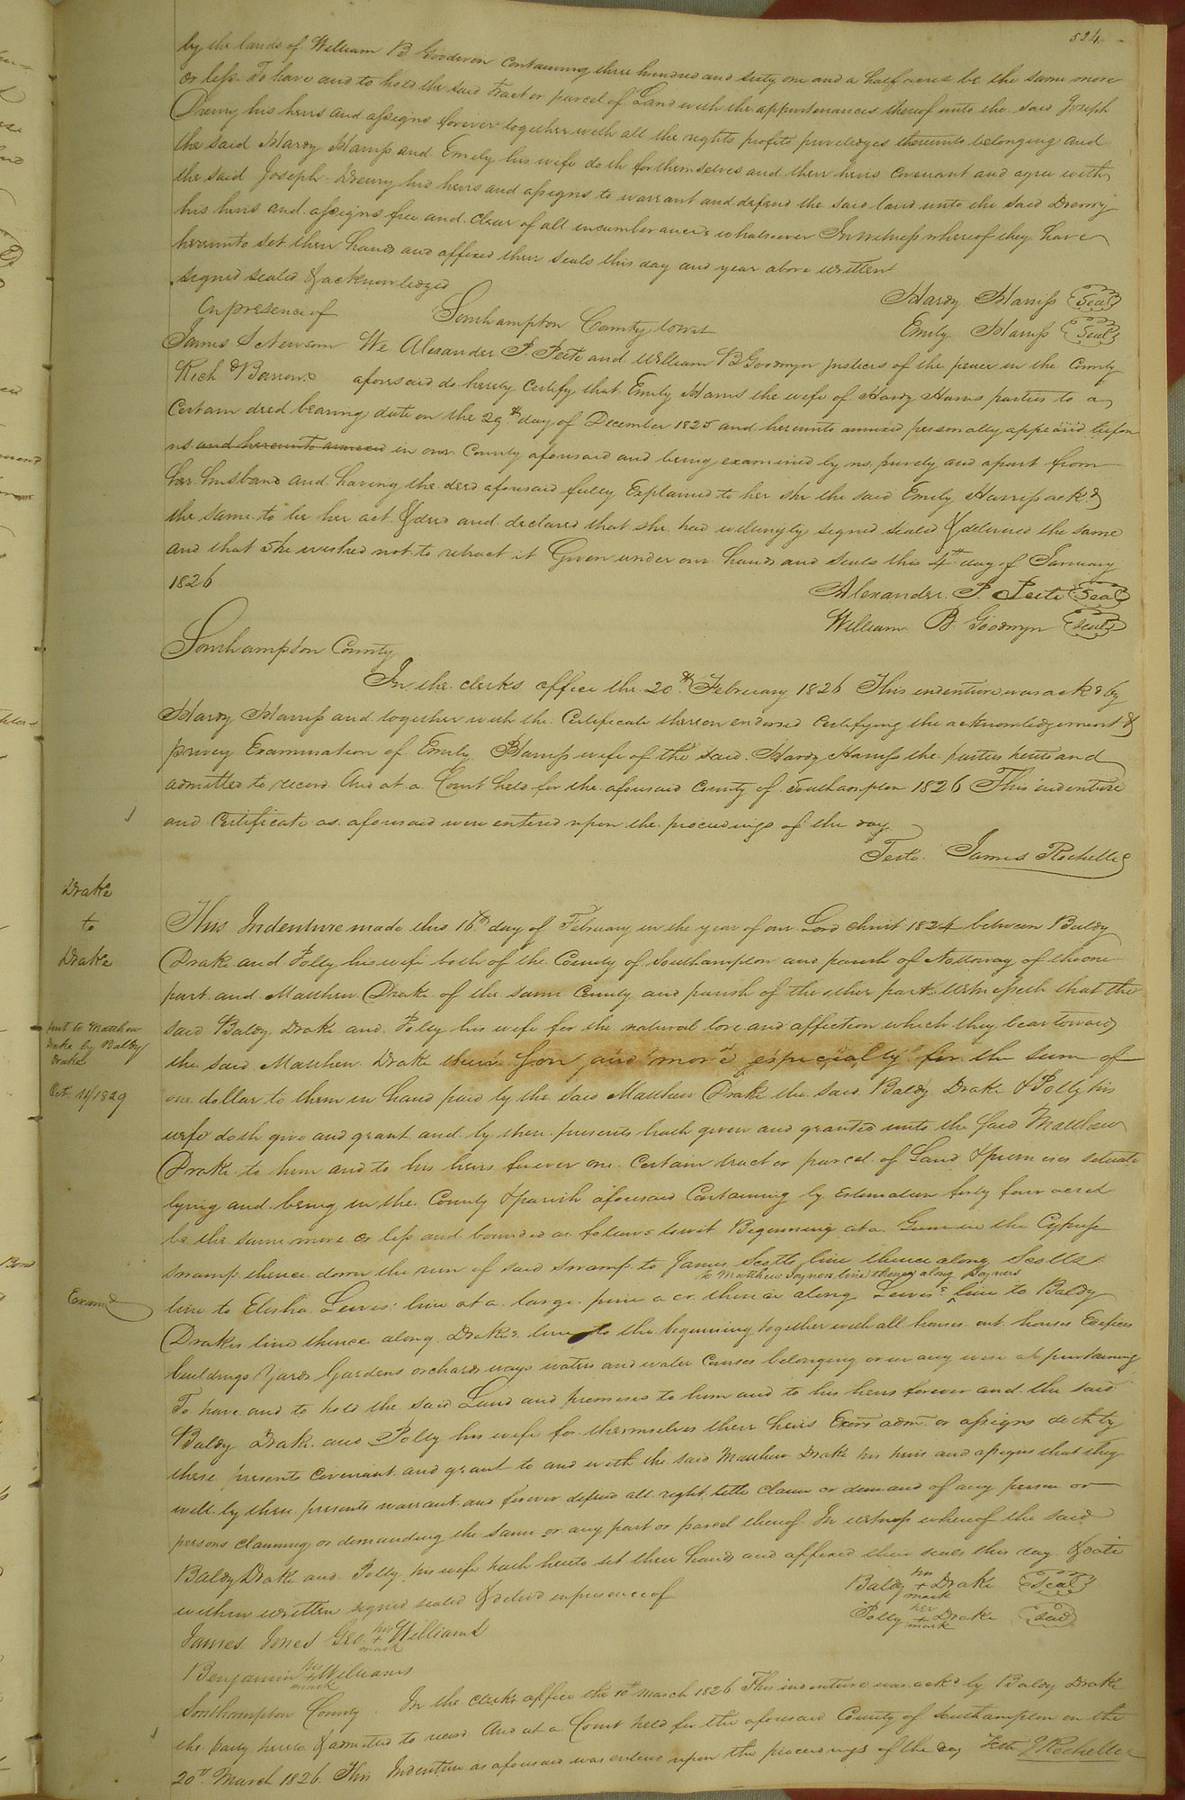 524
by the lands of William B Goodwin containing three hundred and sixty one and a half acres be the same more
or less To have and to hold the said tract or parcel of Land with the appurtenances thereof unto the said Joseph
Drewry his heirs and assigns forever together with all the rights profits priviledges thereunto belonging and
the said Hardy Harriss and Emily his wife doth for themselves and their heirs covenant and agree with
the said Joseph Drewry his heirs and assigns to warrant and defend the said land unto the said Drewry
his heirs and assigns free and clear of all incumberances whatsoever In witness whereof they have
hereunto set their hands and affixed their seals this day and year above written
signed sealed & acknowledged
In presence of
Hardy Harriss Seal
Emily Harriss Seal
James S Newsom
Rich d Barrow
Southampton County towit
We Alexander P. Peete and William B Goodwyn justices of the peace in the County
aforesaid do hereby certify that Emily Harris the wife of Hardy Harris parties to a
certain deed bearing date on the 29th day of December 1825 and hereunto annexed personally appeared before
us and hereunto annexed in our County aforesaid and being examined by us privily and apart from
her husband and having the deed aforesaid fully Explained to her she the said Emily Harriss ackd
the same to be her act & deed and declared that she had willingly signed sealed & delivered the same
and that she wished not to retract it Given under our hands and seals this 4th day of January
1826
Alexander P. Peete Seal
William B. Goodwyn Seal
Southampton County
In the clerks office the 20th February 1826 This indenture was ackd by
Hardy Harriss and together with the Certificate thereon endorsed certifying the acknowledgement &
privy Examination of Emily Harriss wife of the said Hardy Harriss the parties hereto and
admitted to record And at a Court held for the aforesaid County of Southampton 1826 This indenture
and Certificate as aforesaid were entered upon the proceedings of the day
Teste James Rochelle
Drake
to
Drake
sent to Matthew
Drake by Baldy
Drake
Oct 14 1829
This Indenture made this 16th day of February in the year of our Lord christ 1824 between Baldy
Drake and Polly his wife both of the County of Southampton and parish of Nottoway of the one
part and Matthew Drake of the same County and parish of the other part Witnesseth that the
said Baldy Drake and Polly his wife for the natural love and affection which they bear toward
the said Matthew Drake their Son and more especially for the sum of
one dollar to them in hand paid by the said Matthew Drake the said Baldy Drake & Polly his
wife doth give and grant and by these presents hath given and granted unto the said Matthew
Drake to him and to his heirs forever one certain tract or parcel of Land & premises situate
lying and being in the County & parish aforesaid Containing by Estimation forty four acres
be the same more or less and bounded as follows towit Beginning at a Gum in the Cypress
swamp thence down the run of said swamp to James Scotts line thence along Scotts
to Matthew Joyners line thence along Joyners
Examd
line to Elisha Lewis' line at a large pine a cr thence along Lewis's line to Baldy
Drakes line thence along Drakes line to the beginning together with all houses out houses Edifices
buildings Yards Gardens orchards ways waters and water Courses belonging or in any wise appertaining
To have and to hold the said Land and premises to him and to his heirs forever and the said
Baldy Drake and Polly his wife for themselves their heirs Exors adm. or assigns doth by
these presents Covenant and grant to and with the said Matthew Drake his heirs and assigns that they
will by these presents warrant and forever defend all right title claim or demand of any person or
persons claiming or demanding the same or any part or parcel thereof In witness whereof the said
Baldy Drake and Polly his wife hath hereto set their hands and affixed their seals this day & date
within written signed sealed & delivd in presence of
Baldy his + mark Drake Seal
Polly her + mark Drake Seal
James Jones Geo his + mark Williams
Benjamin his + mark Williams
Southampton County In the Clerks office the 10th March 1826 This indenture was ackd by Baldy Drake
the party hereto & admitted to record And at a Court held for the aforesaid County of Southampton on the
20th March 1826. This Indenture as aforesaid was entered upon the proceedings of the day Teste J Rochelle